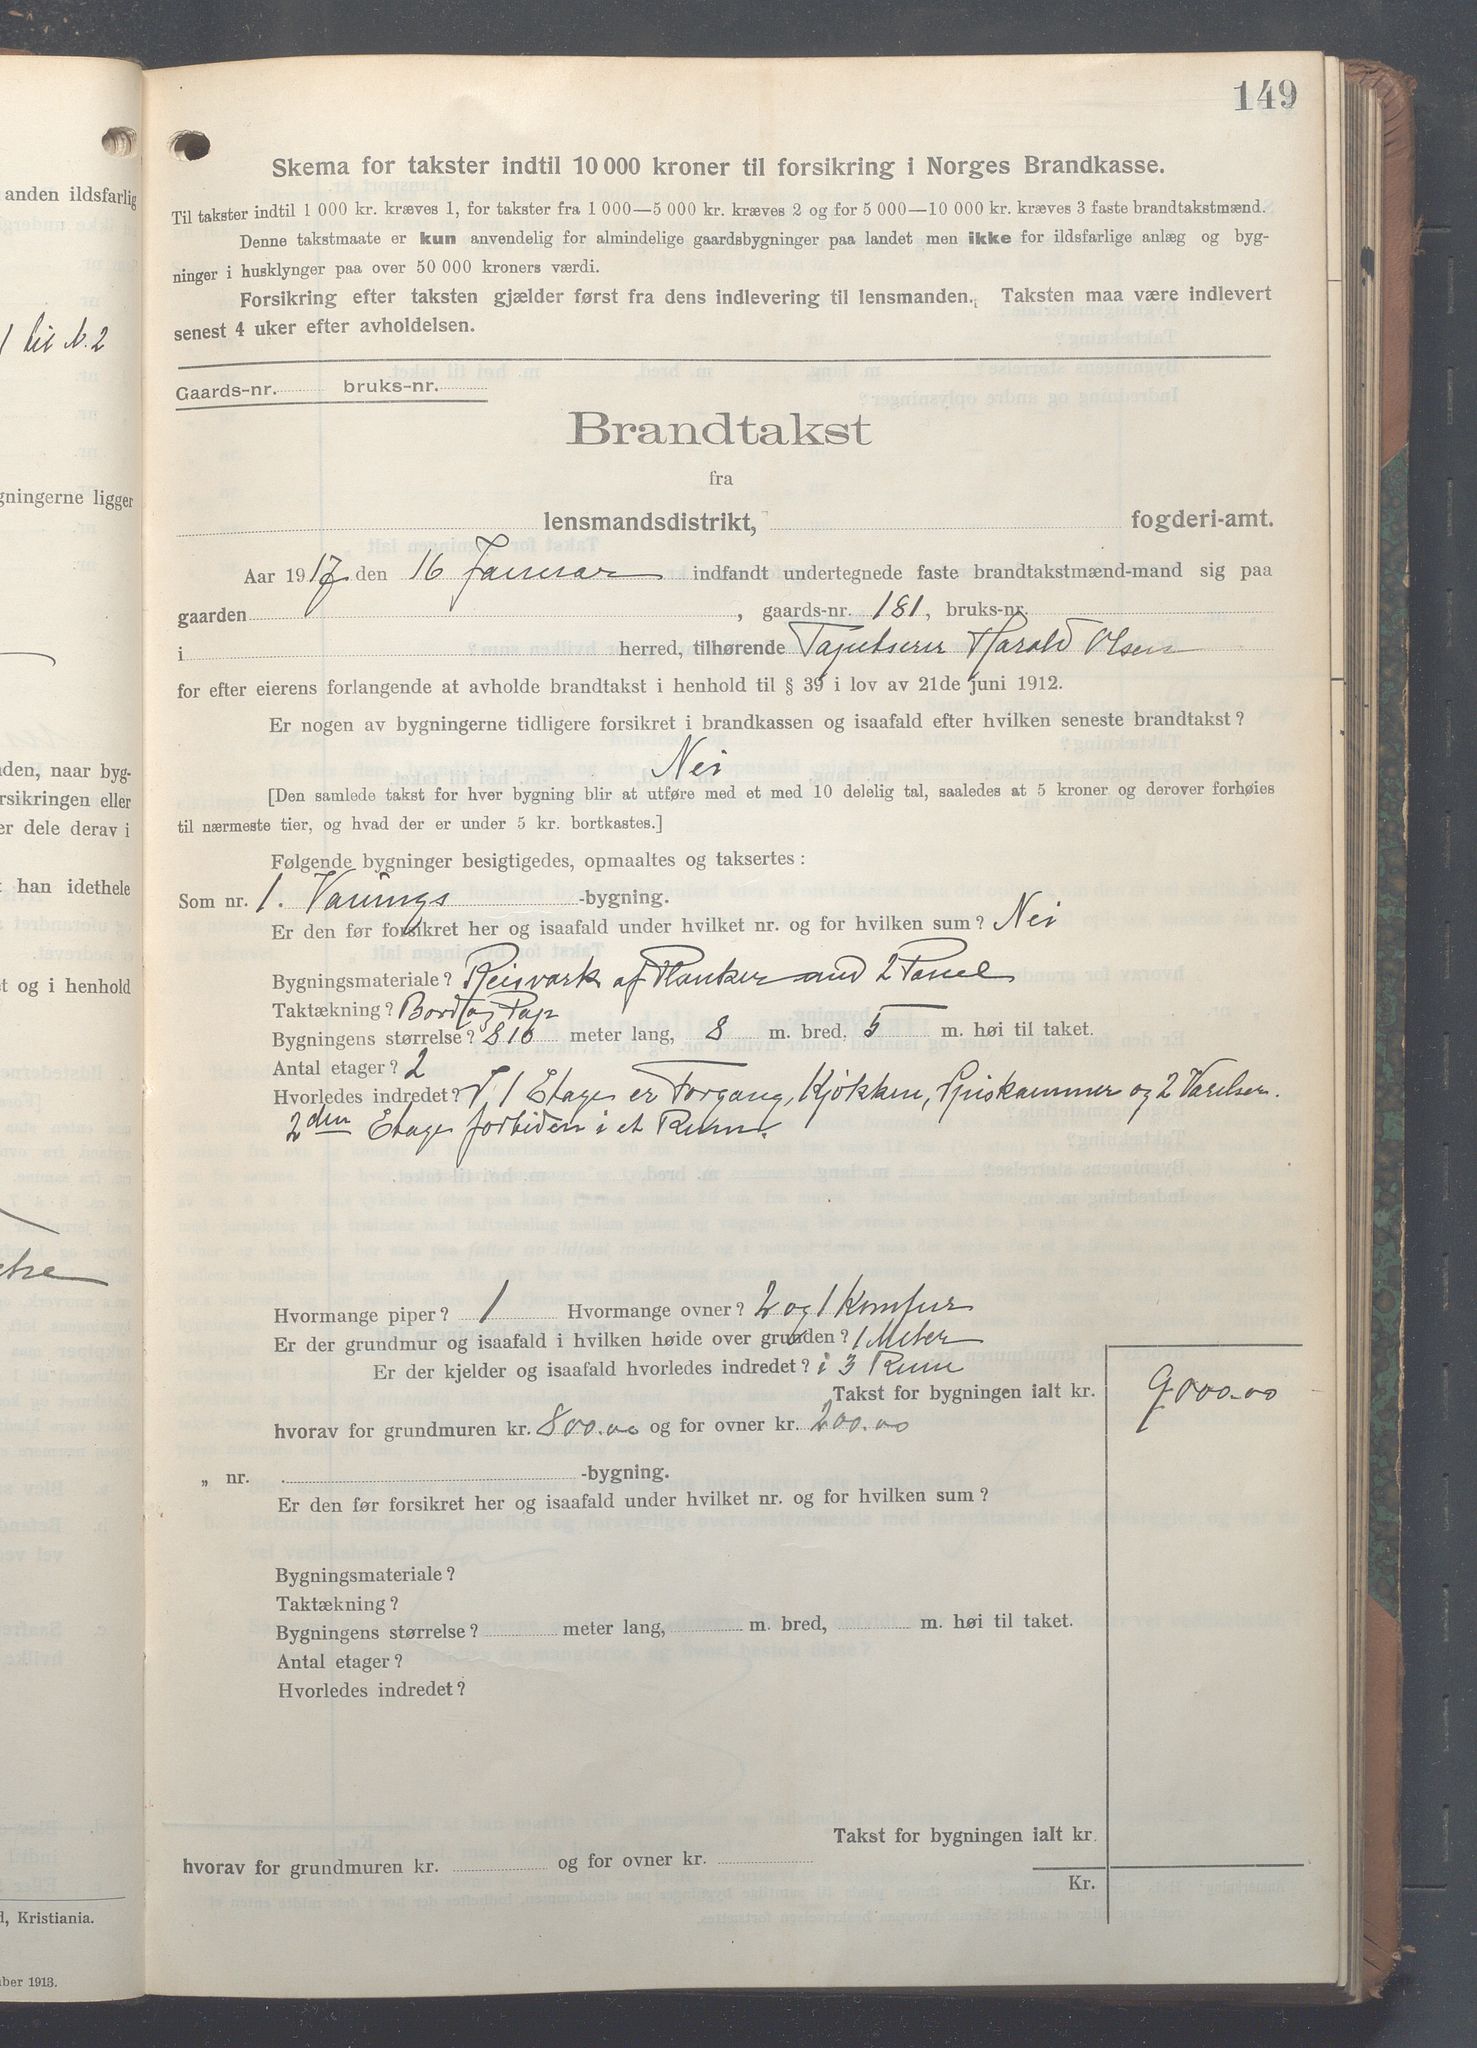 149
anden ildsfarlig
1 til N. 2
gningerne ligger
den, naar byg-
rsikringen eller
er dele derav i
han idethele
t og i henhold
d, Kristiania.
ber 1913.
Skema for takster indtil 10 000 kroner til forsikring i Norges Brandkasse.
Til takster indtil 1 000 kr. kræves 1, for takster fra 1 000—5 000 kr. kræves 2 og for 5 000—10 000 kr. kræves 3 faste brandtakstmænd.
Denne takstmaate er kun anvendelig for almindelige gaardsbygninger paa landet men ikke for ildsfarlige anlæg og byg-
ninger i husklynger paa over 50 000 kroners værdi.
Forsikring efter taksten gjælder først fra dens indlevering til lensmanden. Taksten maa være indlevert
senest 4 uker efter avholdelsen.
Gaards-nr. bruks-nr.
Brandtakst
fra
lensmandsdistrikt, fogderi-amt.
Aar 1917 den 16 Januar indfandt undertegnede faste brandtakstmænd-mand sig paa
gaarden , gaards-nr. 181, bruks-nr.
i herred, tilhørende Tapetserer Harald Olsen
for efter eierens forlangende at avholde brandtakst i henhold til § 39 i lov av 21de juni 1912.
Er nogen av bygningerne tidligere forsikret i brandkassen og isaafald efter hvilken seneste brandtakst?
Nei
[Den samlede takst for hver bygning blir at utføre med et med 10 delelig tal, saaledes at 5 kroner og derover forhøies
til nærmeste tier, og hvad der er under 5 kr. bortkastes.]
Følgende bygninger besigtigedes, opmaaltes og taksertes:
Som nr. 1. Vaanings -bygning.
Er den før forsikret her og isaafald under hvilket nr. og for hvilken sum? Nei
Bygningsmateriale? Reisværk af Planker med 2 Panel
Taktækning? Bord og Pap
Bygningens størrelse? 8 10 meter lang, 8 m. bred, 5 m. høi til taket.
Antal etager? 2
Hvorledes indredet? I 1 Etage er Forgang, Kjøkken, Spiskammer og 2 Værelser.
2den Etage for tiden i et Rum.
Hvormange piper? 1 Hvormange ovner? 2 og 1 Komfur
Er der grundmur og isaafald i hvilken høide over grunden? 1 Meter
Er der kjelder og isaafald hvorledes indredet? i 3 Rum
Takst for bygningen ialt kr. 9000.00
hvorav for grundmuren kr. 800.00 og for ovner kr. 200.00
„ nr. -bygning.
Er den før forsikret her og isaafald under hvilket nr. og for hvilken sum?
Bygningsmateriale?
Taktækning?
Bygningens størrelse? meter lang, m. bred, m. høi til taket.
Antal etager?
Hvorledes indredet?
Takst for bygningen ialt kr.
hvorav for grundmuren kr. og for ovner kr.
Kr.